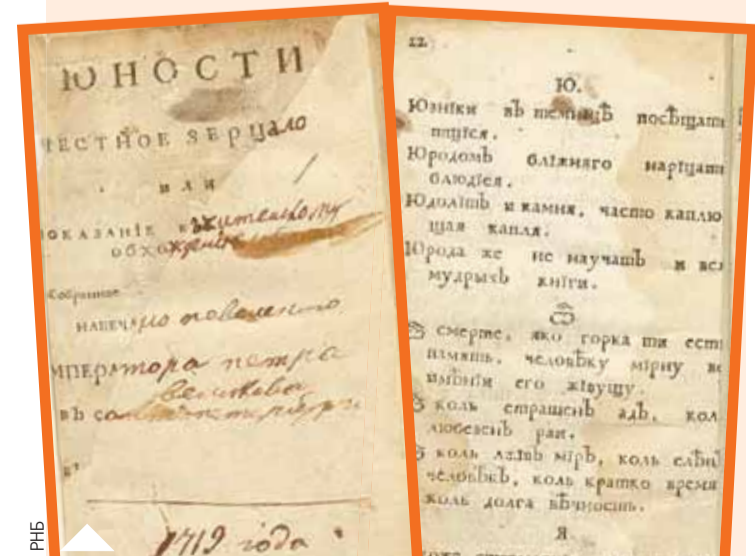 ЮНОСТИ
ЧЕСТНОЕ ЗЕРЦАЛО
ИЛИ
ПОКАЗАНІЕ КЪ житейскому
обхожденію
Собранное
НАПЕЧАтано повелению
ИМПЕРАтора петра
великаго
въ санктпетербурге
1719 года
22
Ю.
Юзнiки въ темницѢ посѢщати
тщiся.
Юродомъ блiжняго нарiцати
блюдiся.
Юдолiтъ и камня, часто каплю
щая капля.
Юрода же не научатъ и все
мудрыхъ кнiги.
Ѿ
Ѿ смерте, яко горка ти есть
память, человѣку мiрну во
имѣнiи его жiвущу.
Ѿ коль страшенъ адъ, кол
любезенъ раи.
Ѿ коль мiръ, коль
человѣкъ, коль кратко время
коль долга вѣчность.
Я
РНБ